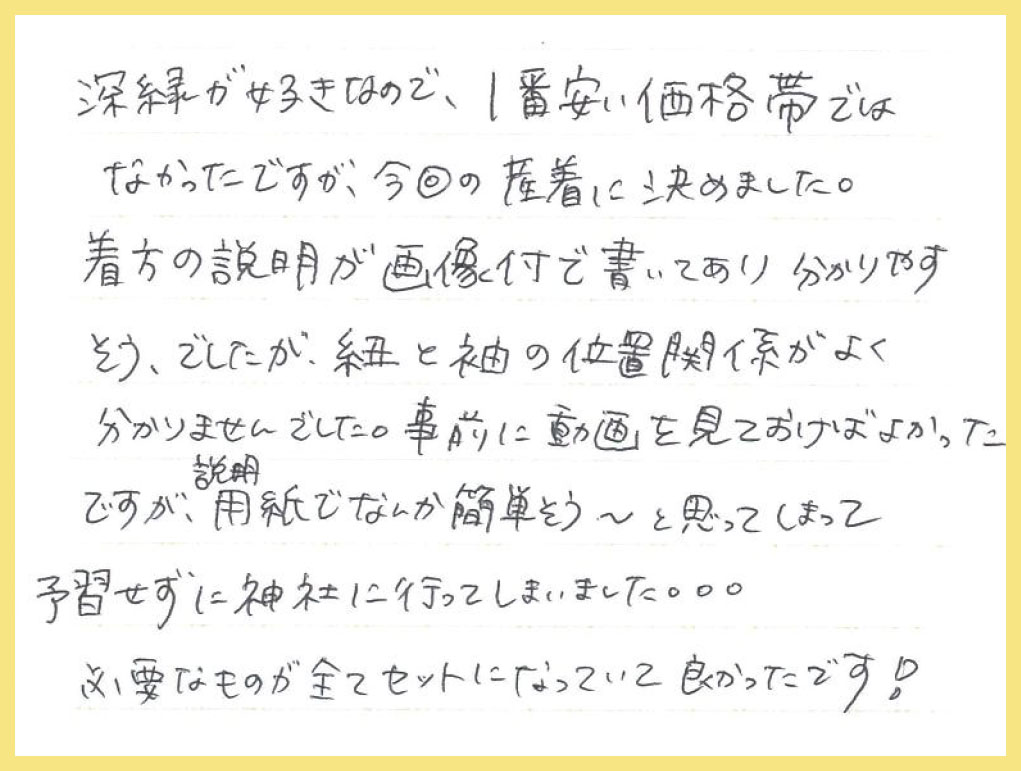 深緑が好きなので、1番安い価格帯では
なかったですが、今回の産着に決めました。
着方の説明が画像付で書いてあり分かりやす
そう、でしたが、紐と袖の位置関係がよく
分かりませんでした。事前に動画を見ておけばよかった
ですが、説明用紙でなんか簡単そう～と思ってしまって
予習せずに神社に行ってしまいました。。。
必要なものが全てセットになっていて良かったです!